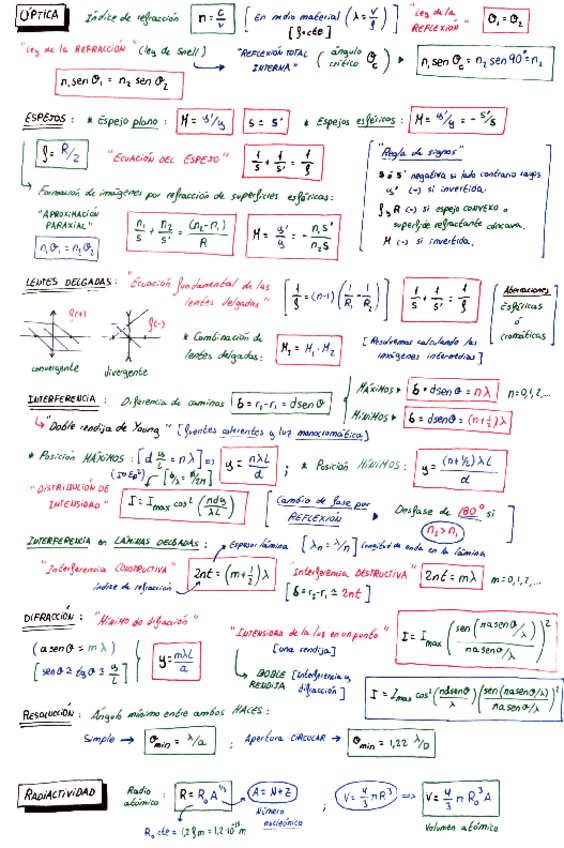 ÓPTICA
Índice de refracción n = c/v [En medio material (λ = v/f) [f = cte]] "Ley de la REFLEXIÓN" θ₁ = θ₂
"Ley de la REFRACCIÓN" (Ley de Snell) "REFLEXIÓN TOTAL INTERNA" (ángulo crítico θc) n₁ sen θc = n₂ sen 90° = n₂
n₁ sen θ₁ = n₂ sen θ₂
ESPEJOS: * Espejo plano: M = y'/y s = s' * Espejos esféricos: M = y'/y = - s'/s
f = R/2 "ECUACIÓN DEL ESPEJO" 1/s + 1/s' = 1/f
"Regla de signos"
s ó s' negativa si lado contrario rayos.
y' (-) si invertida.
f y R (-) si espejo convexo o
superficie refractante cóncava.
M (-) si invertida.
Formación de imágenes por refracción de superficies esféricas:
"APROXIMACIÓN PARAXIAL" n₁/s + n₂/s' = (n₂-n₁)/R M = y'/y = - n₁s'/n₂s
n₁θ₁ = n₂θ₂
LENTES DELGADAS: "Ecuación fundamental de las lentes delgadas" [1/f = (n-1)(1/R₁ - 1/R₂)] 1/s + 1/s' = 1/f [Aberraciones Esféricas ó cromáticas]
f(+) f(-)
convergente divergente
* Combinación de lentes delgadas: M_T = M₁ · M₂ [Resolvemos calculando las imágenes intermedias]
INTERFERENCIA: Diferencia de caminos δ = r₂-r₁ = d sen θ
MÁXIMOS δ = d sen θ = nλ n = 0,1,2,...
MÍNIMOS δ = d sen θ = (n+½)λ
"Doble rendija de Young" [fuentes coherentes y luz monocromática]
* Posición MÁXIMOS: [d y/L = nλ] => y = nλL/d ; * Posición MÍNIMOS: y = (n+½)λL/d
"DISTRIBUCIÓN DE INTENSIDAD" I = Imax cos² (πdy/λL) [Cambio de fase por REFLEXIÓN Desfase de 180° si n₂>n₁]
INTERFERENCIA en LÁMINAS DELGADAS: Espesor lámina [λn = λ/n] longitud de onda en la lámina
"Interferencia CONSTRUCTIVA" 2nt = (m+½)λ "Interferencia DESTRUCTIVA" 2nt = mλ m = 0,1,2,...
índice de refracción [δ = r₂-r₁ ≃ 2nt]
DIFRACCIÓN: "Mínimo de difracción" "INTENSIDAD de la luz en un punto" [una rendija] I = Imax (sen(πa sen θ/λ)/(πa sen θ/λ))²
(a sen θ = mλ) y = mλL/a
[sen θ ≃ tg θ ≃ y/L]
DOBLE RENDIJA [interferencia y difracción] I = Imax cos²(πd sen θ/λ)(sen(πa sen θ/λ)/(πa sen θ/λ))²
RESOLUCIÓN: Ángulo mínimo entre ambos HACES:
Simple → θmin = λ/a ; Apertura CIRCULAR → θmin = 1,22 λ/D
RADIACTIVIDAD
Radio atómico: R = R₀A^(1/3) A = N+Z Número nucleónico ; V = 4/3 πR³ => V = 4/3 π R₀³ A
R₀ cte = 1,2 fm = 1,2·10⁻¹⁵ m Volumen atómico